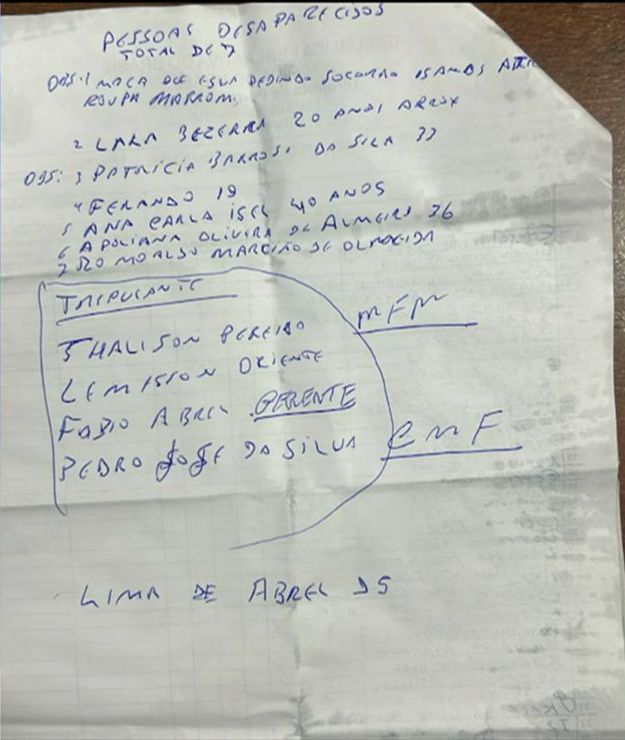 PESSOAS DESAPARECIDOS
TOTAL DE 7
OBS: 1 MACA QUE ESUA PEDINDO SOCORRO 15 ANOS
ROUPA MARROM.
2 LARA BEZERRA 20 ANOS APROX
OBS: 3 PATRICIA BARROS DA SILA 33
4 FERANDO 19
5 ANA CARLA ISEL 40 ANOS
6 APOLIANA OLIVIRA DE ALMEIRO 36
7 MARCIAO DE OLMOEIDA
TRIPULANTE
THALISON PEREIRO
MFM
LEMISSON ORIENTE
FABIO ABREL GERENTE
PEDRO JOSE DA SILVA
CMF
LIMA DE ABREL 15